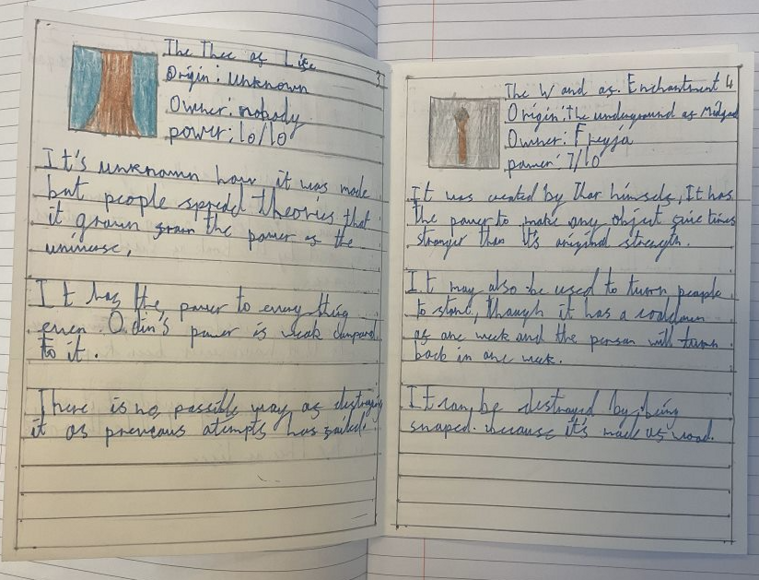 The Thee of Life
3
Origin: unknown
Owner: nobody
power: 10/10
It's unknown how it was made
but people spread theories that
it grown from the power of the
universe.
It has the power to every thing
even Odin's power is weak compared
to it.
There is no possible way of destroying
it as preveous atempts has failed.
The Wand of Enchantment 4
Origin: The underground of Midgad
Owner: Freyja
power: 7/10
It was created by Thor himself, It has
the power to make any object five times
stronger than it's original strength.
It may also be used to turn people
to stone, though it has a cooldown
of one week and the person will turn
back in one week.
It can be destroyed by being
snaped. because it's made of wood.